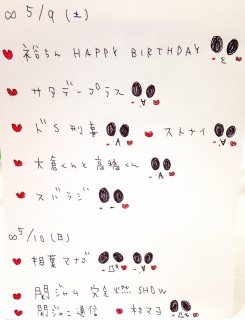 ∞ 5/9 (土)
♥ 裕ちん HAPPY BIRTHDAY
♥ サタデープラス
♥ ドS刑事 ♥ ストナイ
♥ 大倉くんと高橋くん
♥ スバラジ
∞ 5/10 (日)
♥ 相葉マナブ
♥ 関ジャム 完全燃SHOW
♥ 関ジャニ通信 ♥ 村マヨ